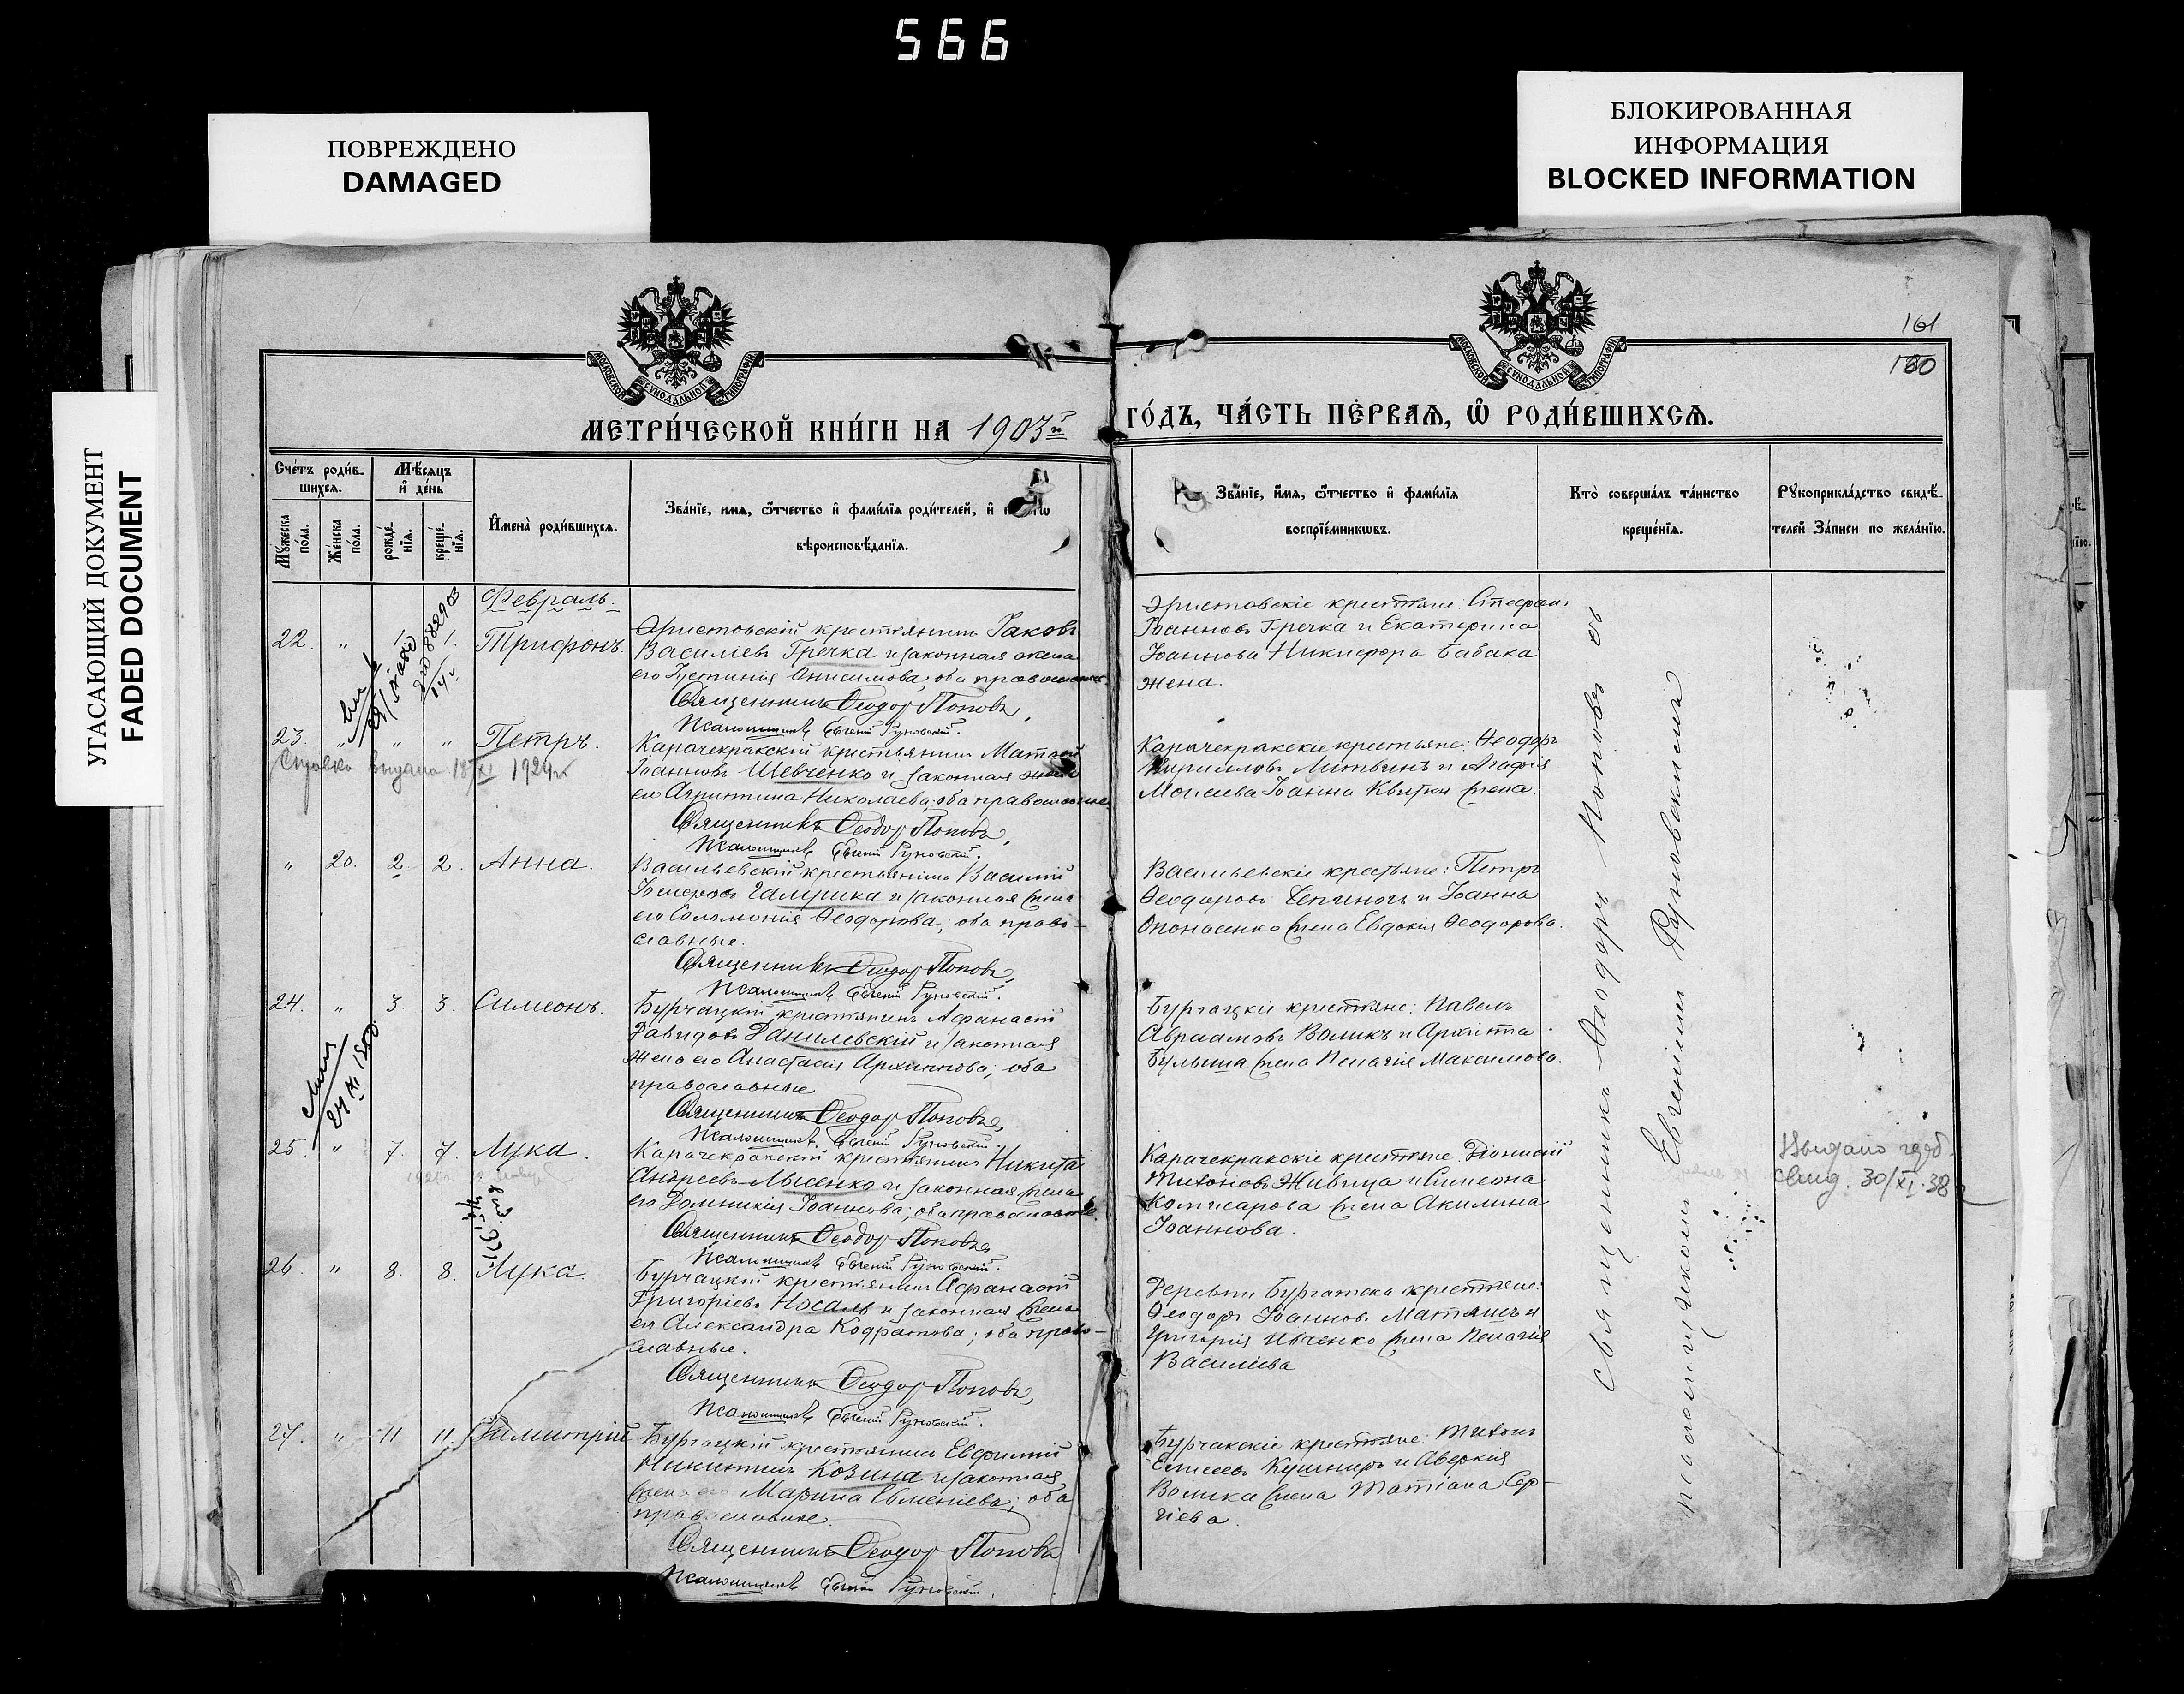 566
ПОВРЕЖДЕНО
DAMAGED
БЛОКИРОВАННАЯ
ИНФОРМАЦИЯ
BLOCKED INFORMATION
УГАСАЮЩИЙ ДОКУМЕНТ
FADED DOCUMENT
МОСКОВСКОЙ СУНОДАЛЬНОЙ ТИПОГРАФІИ
МОСКОВСКОЙ СУНОДАЛЬНОЙ ТИПОГРАФІИ
161
180
МЕТРИ́ЧЕСКОЙ КНИ́ГИ НА 1903й
ГО́ДЪ, ЧА́СТЬ ПЕ́РВАѦ, Ѡ҆ РОДИ́ВШИХСѦ.
Сче́тъ роди́в-
шихсѧ.
Мꙋ́жеска по́ла.
Же́нска по́ла.
Мѣ́сѧцъ
и҆ де́нь
рожде́-
нїѧ.
креще́-
нїѧ.
И҆мена̀ роди́вшихсѧ.
Зва́нїе, имѧ, ѻ҆́тчество и҆ фами́лїѧ роди́телей, и҆
вѣроисповѣ́данїѧ.
Зва́нїе, и҆́мѧ, ѻ҆́тчество и҆ фами́лїѧ
воспрїе́мникωвъ.
Кто̀ соверша́лъ та́инство
креще́нїѧ.
Рꙋкоприкла́дство свидѣ́-
телей За́писи по жела́нїю.
Февраль.
22. " 1. 1. Трифонъ.
Христовскій крестьянинъ Іаковъ
Василіевъ Гречка и законная жена
его Іустинія Онисимова; оба православные.
Священникъ Ѳеодоръ Поповъ,
Псаломщикъ Евгеній Руновскій.
Христовскіе крестьяне: Стефанъ
Іоанновъ Гречка и Екатерина
Іоаннова Никифора Бабака
жена.
23. " " " Петръ.
Справка выдана 18/XI 1924г
Карачекракскій крестьянинъ Матѳей
Іоанновъ Шевченко и законная жена
его Агриппина Николаева; оба православные.
Священникъ Ѳеодоръ Поповъ,
Псаломщикъ Евгеній Руновскій.
Карачекракскіе крестьяне: Ѳеодоръ
Кирилловъ Литвинъ и Агафія
Моисеева Іоанна Квитки жена.
" 20. 2. 2. Анна.
Васильевскій крестьянинъ Василій
Галушка и законная жена
его Соломонія Ѳеодорова; оба право-
славные.
Священникъ Ѳеодоръ Поповъ,
Псаломщикъ Евгеній Руновскій.
Васильевскіе крестьяне: Петръ
Ѳеодоровъ и Іоанна
Опонасенко жена Евдокія Ѳеодорова.
24. " 3. 3. Симеонъ.
Бурчацкій крестьянинъ Афанасій
Давидовъ Данилевскій и законная
жена его Анастасія Архиппова; оба
православные
Священникъ Ѳеодоръ Поповъ,
Псаломщикъ Евгеній Руновскій.
Бурчацкіе крестьяне: Павелъ
Авраамовъ Воликъ и Архиппа
жена Пелагія Максимова.
25. " 7. 7. Лука.
Карачекракскій крестьянинъ Никита
Андреевъ Лысенко и законная жена
его Домникія Іоаннова; оба православные.
Священникъ Ѳеодоръ Поповъ,
Псаломщикъ Евгеній Руновскій.
Карачекракскіе крестьяне: Діонисій
Тихоновъ Живица и Симеона
Комисарова жена Акилина
Іоаннова.
Выдано
свид. 30/XI-38
26. " 8. 8. Лука.
Бурчацкій крестьянинъ Афанасій
Григоріевъ Носаль и законная жена
его Александра Кодратова; оба право-
славные.
Священникъ Ѳеодоръ Поповъ,
Псаломщикъ Евгеній Руновскій.
Деревни Бурчатска крестьяне:
Ѳеодоръ Іоанновъ Матяшъ и
Григорія Ивченко жена Пелагія
Василіева
27. " 11 11. Димитрій
Бурчацкій крестьянинъ Евфимій
Никитинъ Козина и законная
жена его Марина Евменіева; оба
православные.
Священникъ Ѳеодоръ Поповъ
Псаломщикъ Евгеній Руновскій.
Бурчакскіе крестьяне: Тихонъ
Елисеевъ Кушниръ и Аверкія
Волика жена Татіана Сер-
гіева.
Священникъ Ѳеодоръ Поповъ съ
псаломщикомъ Евгеніемъ Руновскимъ